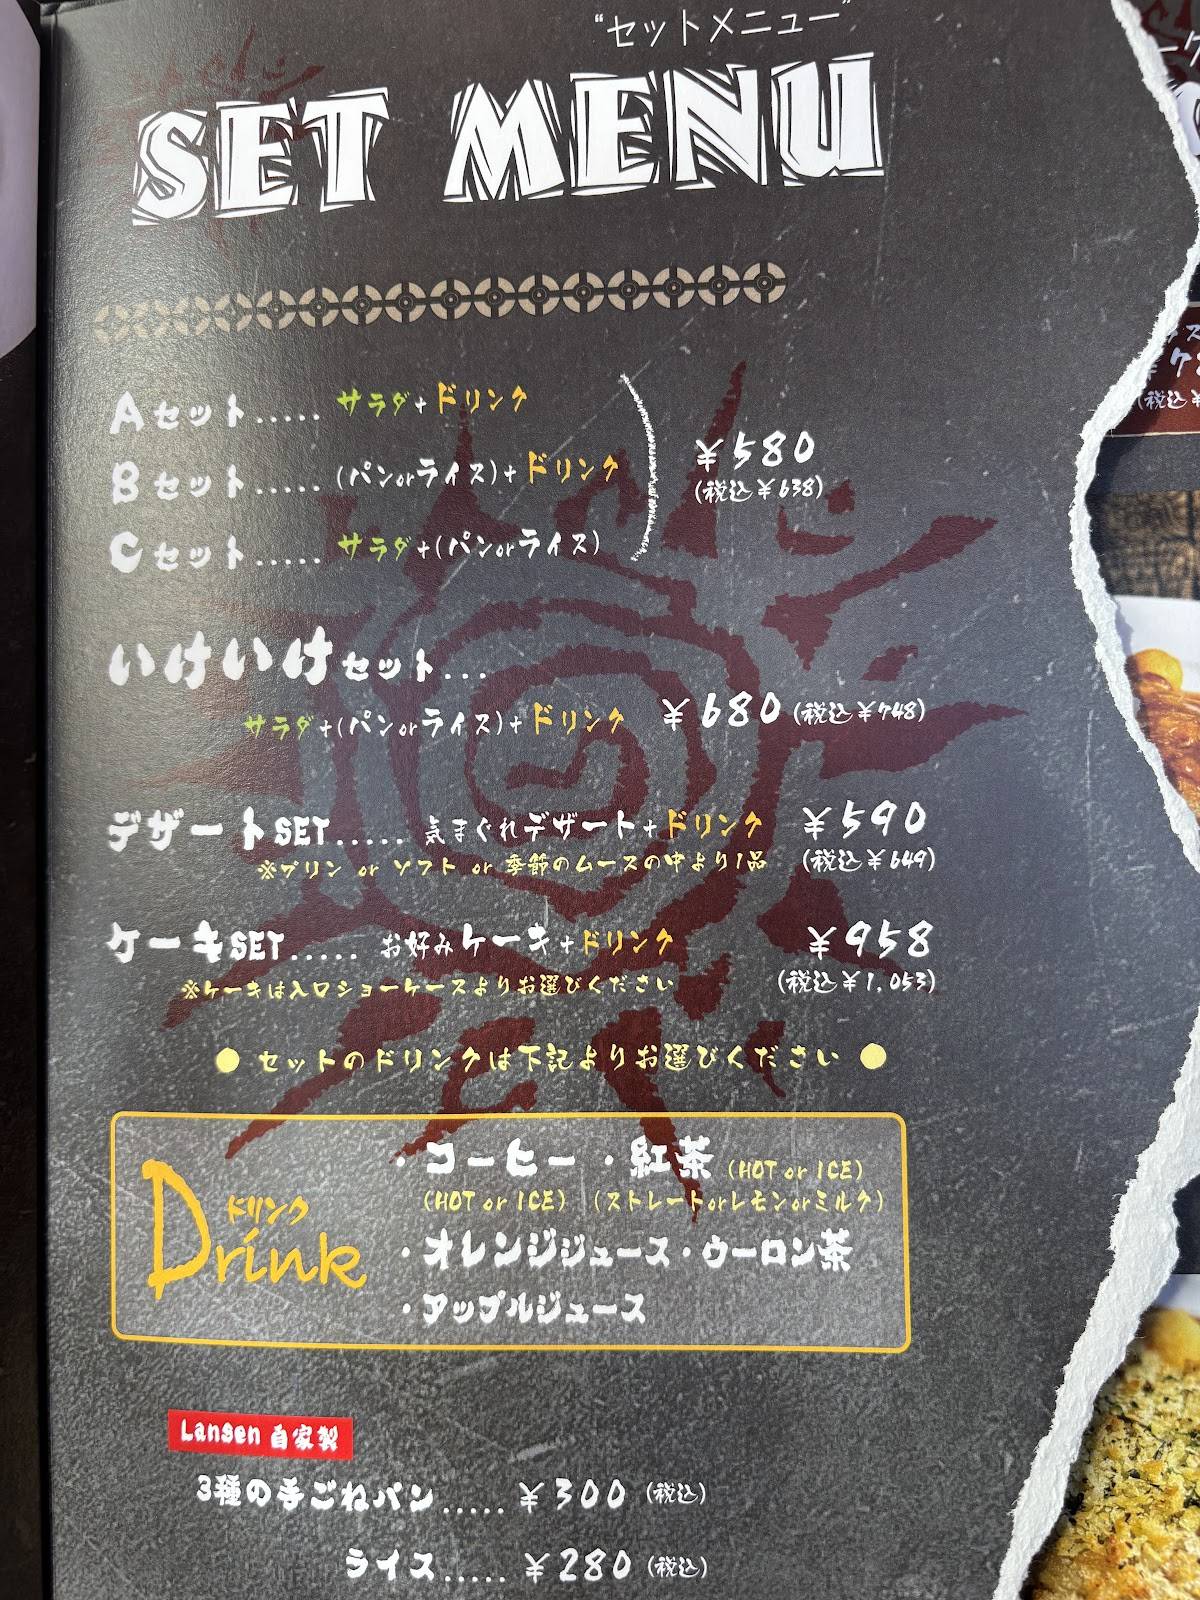 “セットメニュー”
SET MENU
Aセット..... サラダ+ドリンク
Bセット..... (パンorライス)+ドリンク
Cセット..... サラダ+(パンorライス)
¥580
(税込¥638)
いけいけセット...
サラダ+(パンorライス)+ドリンク ¥680(税込¥748)
デザートSET..... 気まぐれデザート+ドリンク ¥590
※プリン or ソフト or 季節のムースの中より1品 (税込¥649)
ケーキSET..... お好みケーキ+ドリンク ¥958
※ケーキは入口ショーケースよりお選びください (税込¥1,053)
●セットのドリンクは下記よりお選びください●
ドリンク
Drink
・コーヒー ・紅茶 (HOT or ICE)
(HOT or ICE) (ストレートorレモンorミルク)
・オレンジジュース・ウーロン茶
・アップルジュース
Lansen 自家製
3種の手ごねパン..... ¥300 (税込)
ライス..... ¥280 (税込)